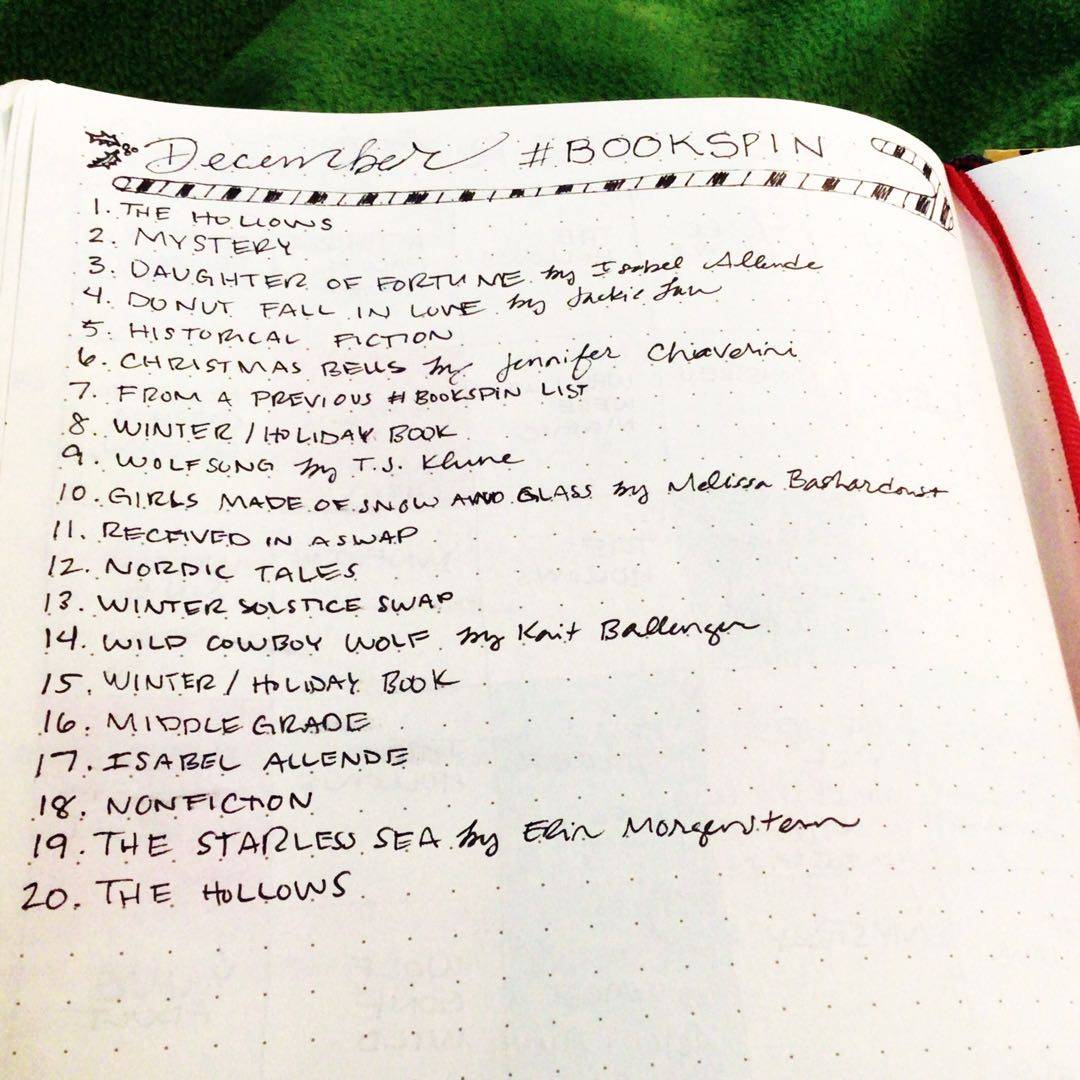 December #BOOKSPIN
1. THE HOLLOWS
2. MYSTERY
3. DAUGHTER OF FORTUNE by Isabel Allende
4. DONUT FALL IN LOVE by Jackie Lau
5. HISTORICAL FICTION
6. CHRISTMAS BELLS by Jennifer Chiaverini
7. FROM A PREVIOUS #BOOKSPIN LIST
8. WINTER/HOLIDAY BOOK
9. WOLFSONG by T.J. Klune
10. GIRLS MADE OF SNOW AND GLASS by Melissa Bashardoust
11. RECEIVED IN A SWAP
12. NORDIC TALES
13. WINTER SOLSTICE SWAP
14. WILD COWBOY WOLF by Kait Ballenger
15. WINTER/HOLIDAY BOOK
16. MIDDLE GRADE
17. ISABEL ALLENDE
18. NONFICTION
19. THE STARLESS SEA by Erin Morgenstern
20. THE HOLLOWS